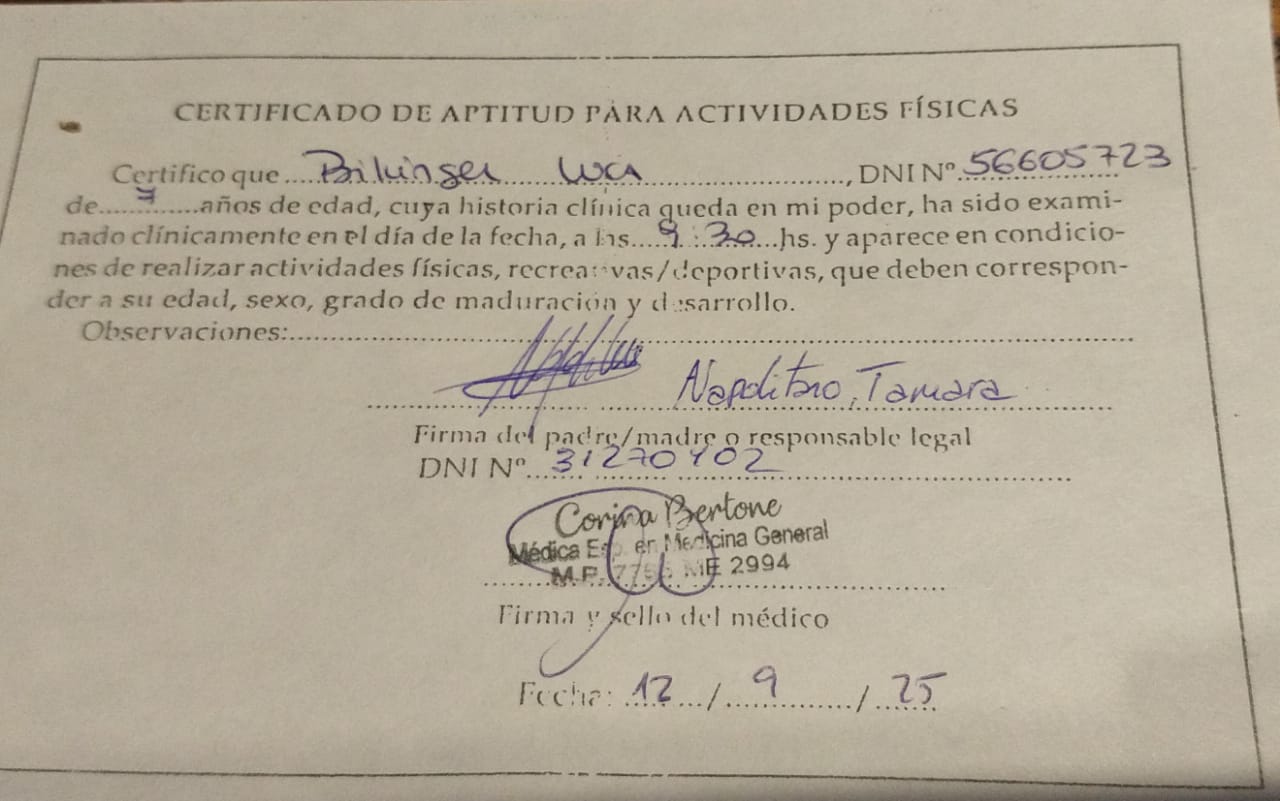 CERTIFICADO DE APTITUD PARA ACTIVIDADES FÍSICAS
Certifico que .... Luca ...., DNI Nº 56605723
de....7....años de edad, cuya historia clínica queda en mi poder, ha sido exami-
nado clínicamente en el día de la fecha, a las....9:30...hs. y aparece en condicio-
nes de realizar actividades físicas, recreativas/deportivas, que deben correspon-
der a su edad, sexo, grado de maduración y desarrollo.
Observaciones:
Napolitano, Tamara
Firma del padre/madre o responsable legal
DNI Nº
Corina Bertone
Médica Esp. en Medicina General
M.P. ME 2994
Firma y sello del médico
Fecha: 12 / 9 / 25